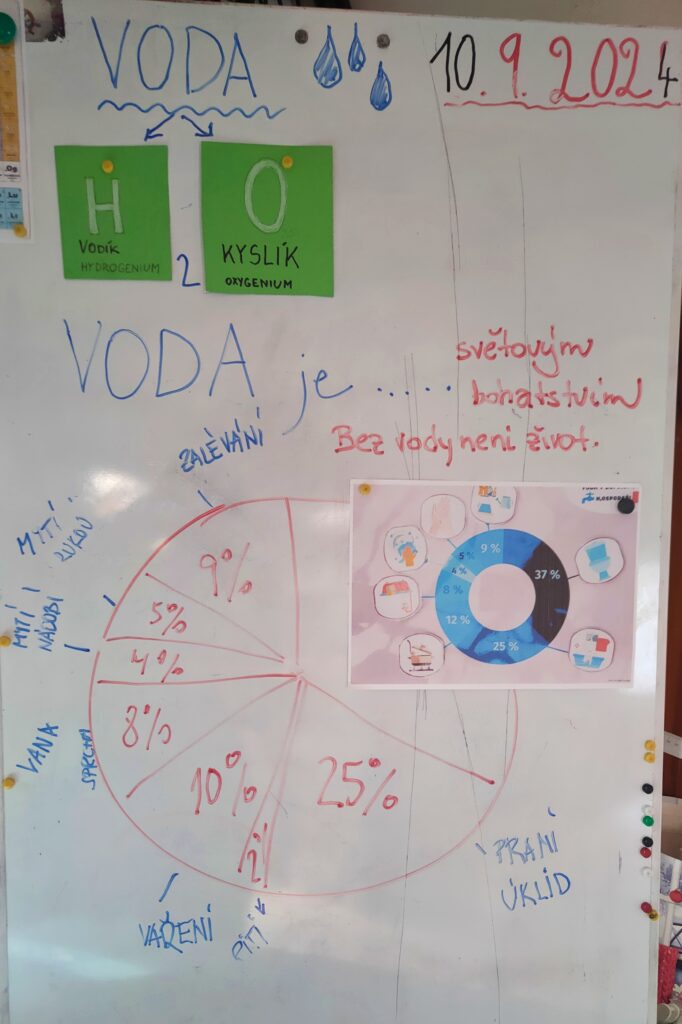 VODA
10. 9. 2024
H
VODÍK
HYDROGENIUM
2
O
KYSLÍK
OXYGENIUM
VODA je .....
světovým
bohatstvím
Bez vody není život.
ZALÉVÁNÍ
MYTÍ
RUKOU
MYTÍ
NÁDOBÍ
VANA
SPRCHA
VAŘENÍ
PITÍ
PRANÍ
ÚKLID
9%
5%
4%
8%
10%
2%
25%
9 %
37 %
5 %
4 %
8 %
12 %
25 %
Og
Lu